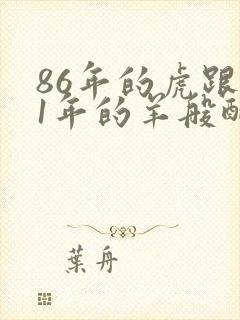 86年的虎跟
1年的羊般配
葉舟